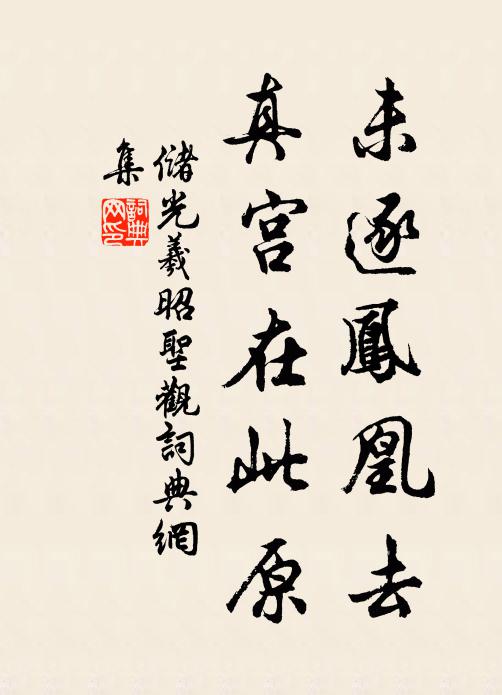 未逐鳳凰去
真宮在此原
儲光羲昭聖觀詞典網
集
詞典
網印